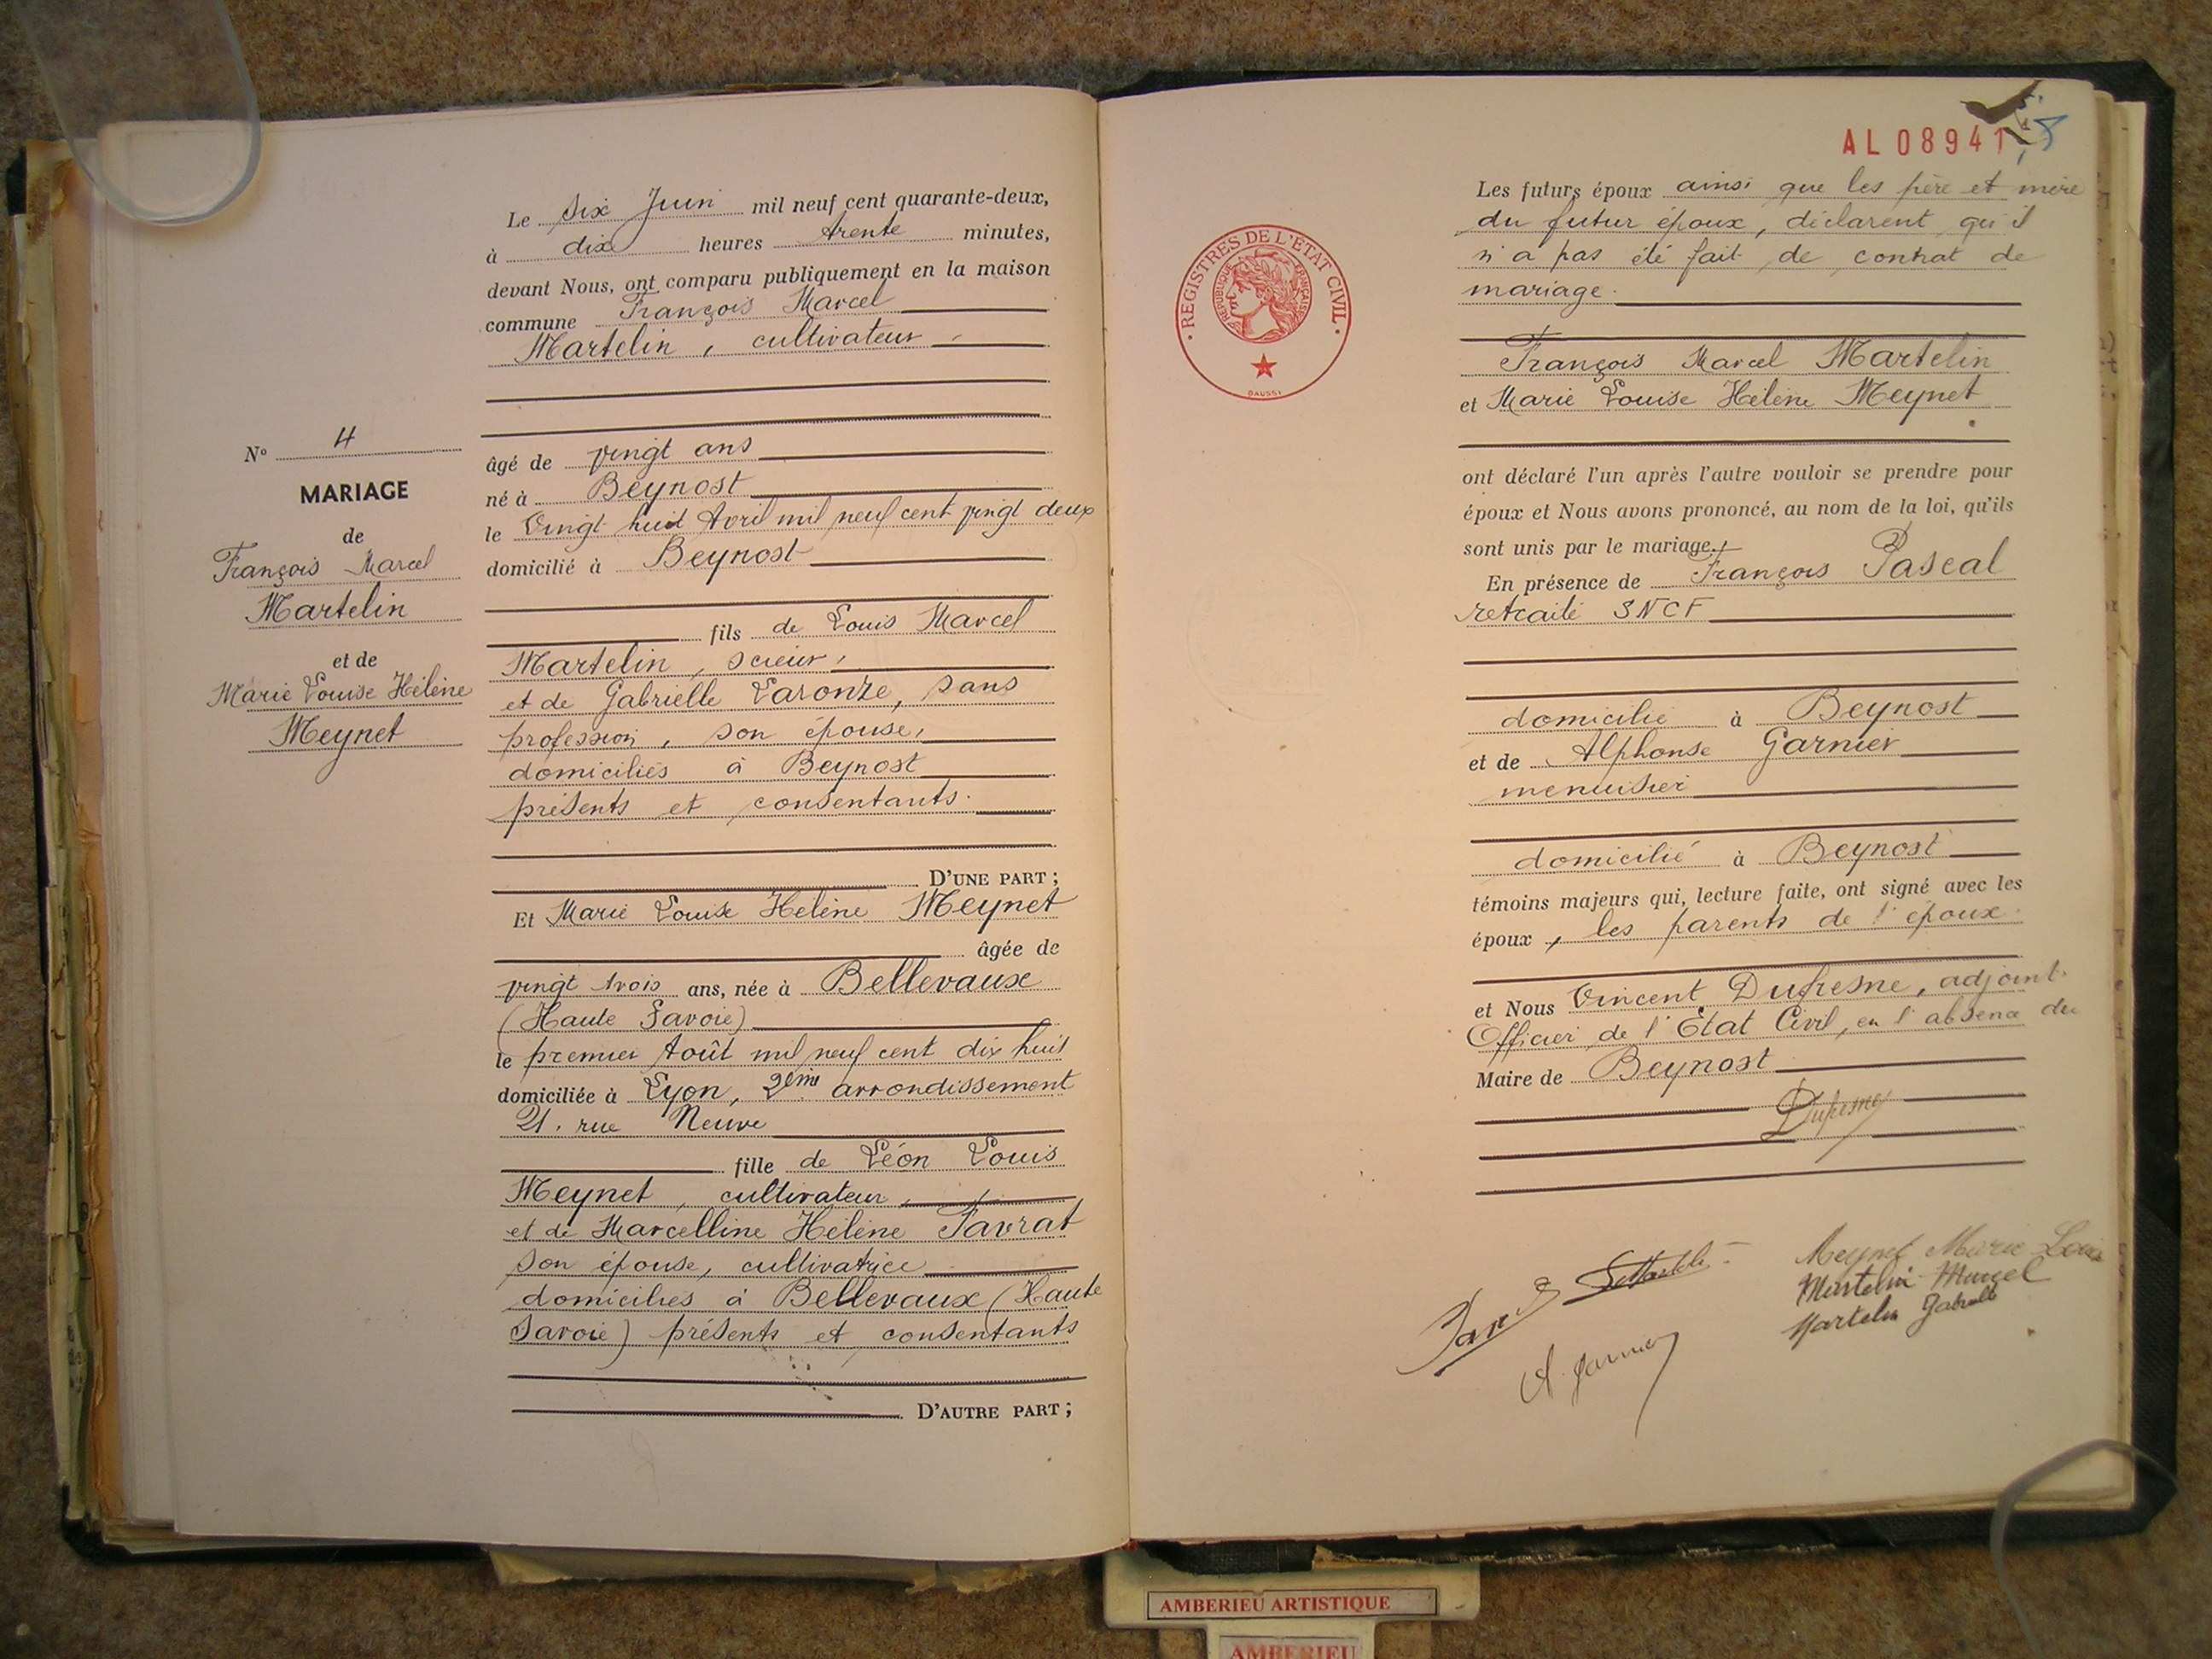 Le Six Juin mil neuf cent quarante-deux,
à dix heures trente minutes,
devant Nous, ont comparu publiquement en la maison
commune François Marcel
Martelin, cultivateur
âgé de vingt ans
né à Beynost
le Vingt huit Avril mil neuf cent vingt deux
domicilié à Beynost
fils de Louis Marcel
Martelin, scieur,
et de Gabrielle Laronze, sans
profession, son épouse,
domiciliés à Beynost
présents et consentants.
D'UNE PART ;
Et Marie Louise Hélène Meynet
âgée de
vingt trois ans, née à Bellevaux
(Haute Savoie)
le premier Août mil neuf cent dix huit
domiciliée à Lyon, 2ème arrondissement
21. rue Neuve
fille de Léon Louis
Meynet, cultivateur,
et de Marcelline Hélène Favrat
son épouse, cultivatrice
domiciliés à Bellevaux (Haute
Savoie) présents et consentants
D'AUTRE PART ;
N° 4
MARIAGE
de
François Marcel
Martelin
et de
Marie Louise Hélène
Meynet
AL 08941
REGISTRES DE L'ETAT CIVIL
REPUBLIQUE FRANÇAISE
DAUSSI
Les futurs époux ainsi que les père et mère
du futur époux, déclarent qu'il
n'a pas été fait de contrat de
mariage.
François Marcel Martelin
et Marie Louise Hélène Meynet
ont déclaré l'un après l'autre vouloir se prendre pour
époux et Nous avons prononcé, au nom de la loi, qu'ils
sont unis par le mariage.
En présence de François Pascal
retraité SNCF
domicilié à Beynost
et de Alphonse Garnier
menuisier
domicilié à Beynost
témoins majeurs qui, lecture faite, ont signé avec les
époux, les parents de l'époux.
et Nous Vincent Dufresne, adjoint.
Officier de l'Etat Civil, en l'absence du
Maire de Beynost
Dufresne
Meynet Marie Louise
Martelin Marcel
Martelin Gabrielle
A. Garnier
AMBERIEU ARTISTIQUE
AMBERIEU